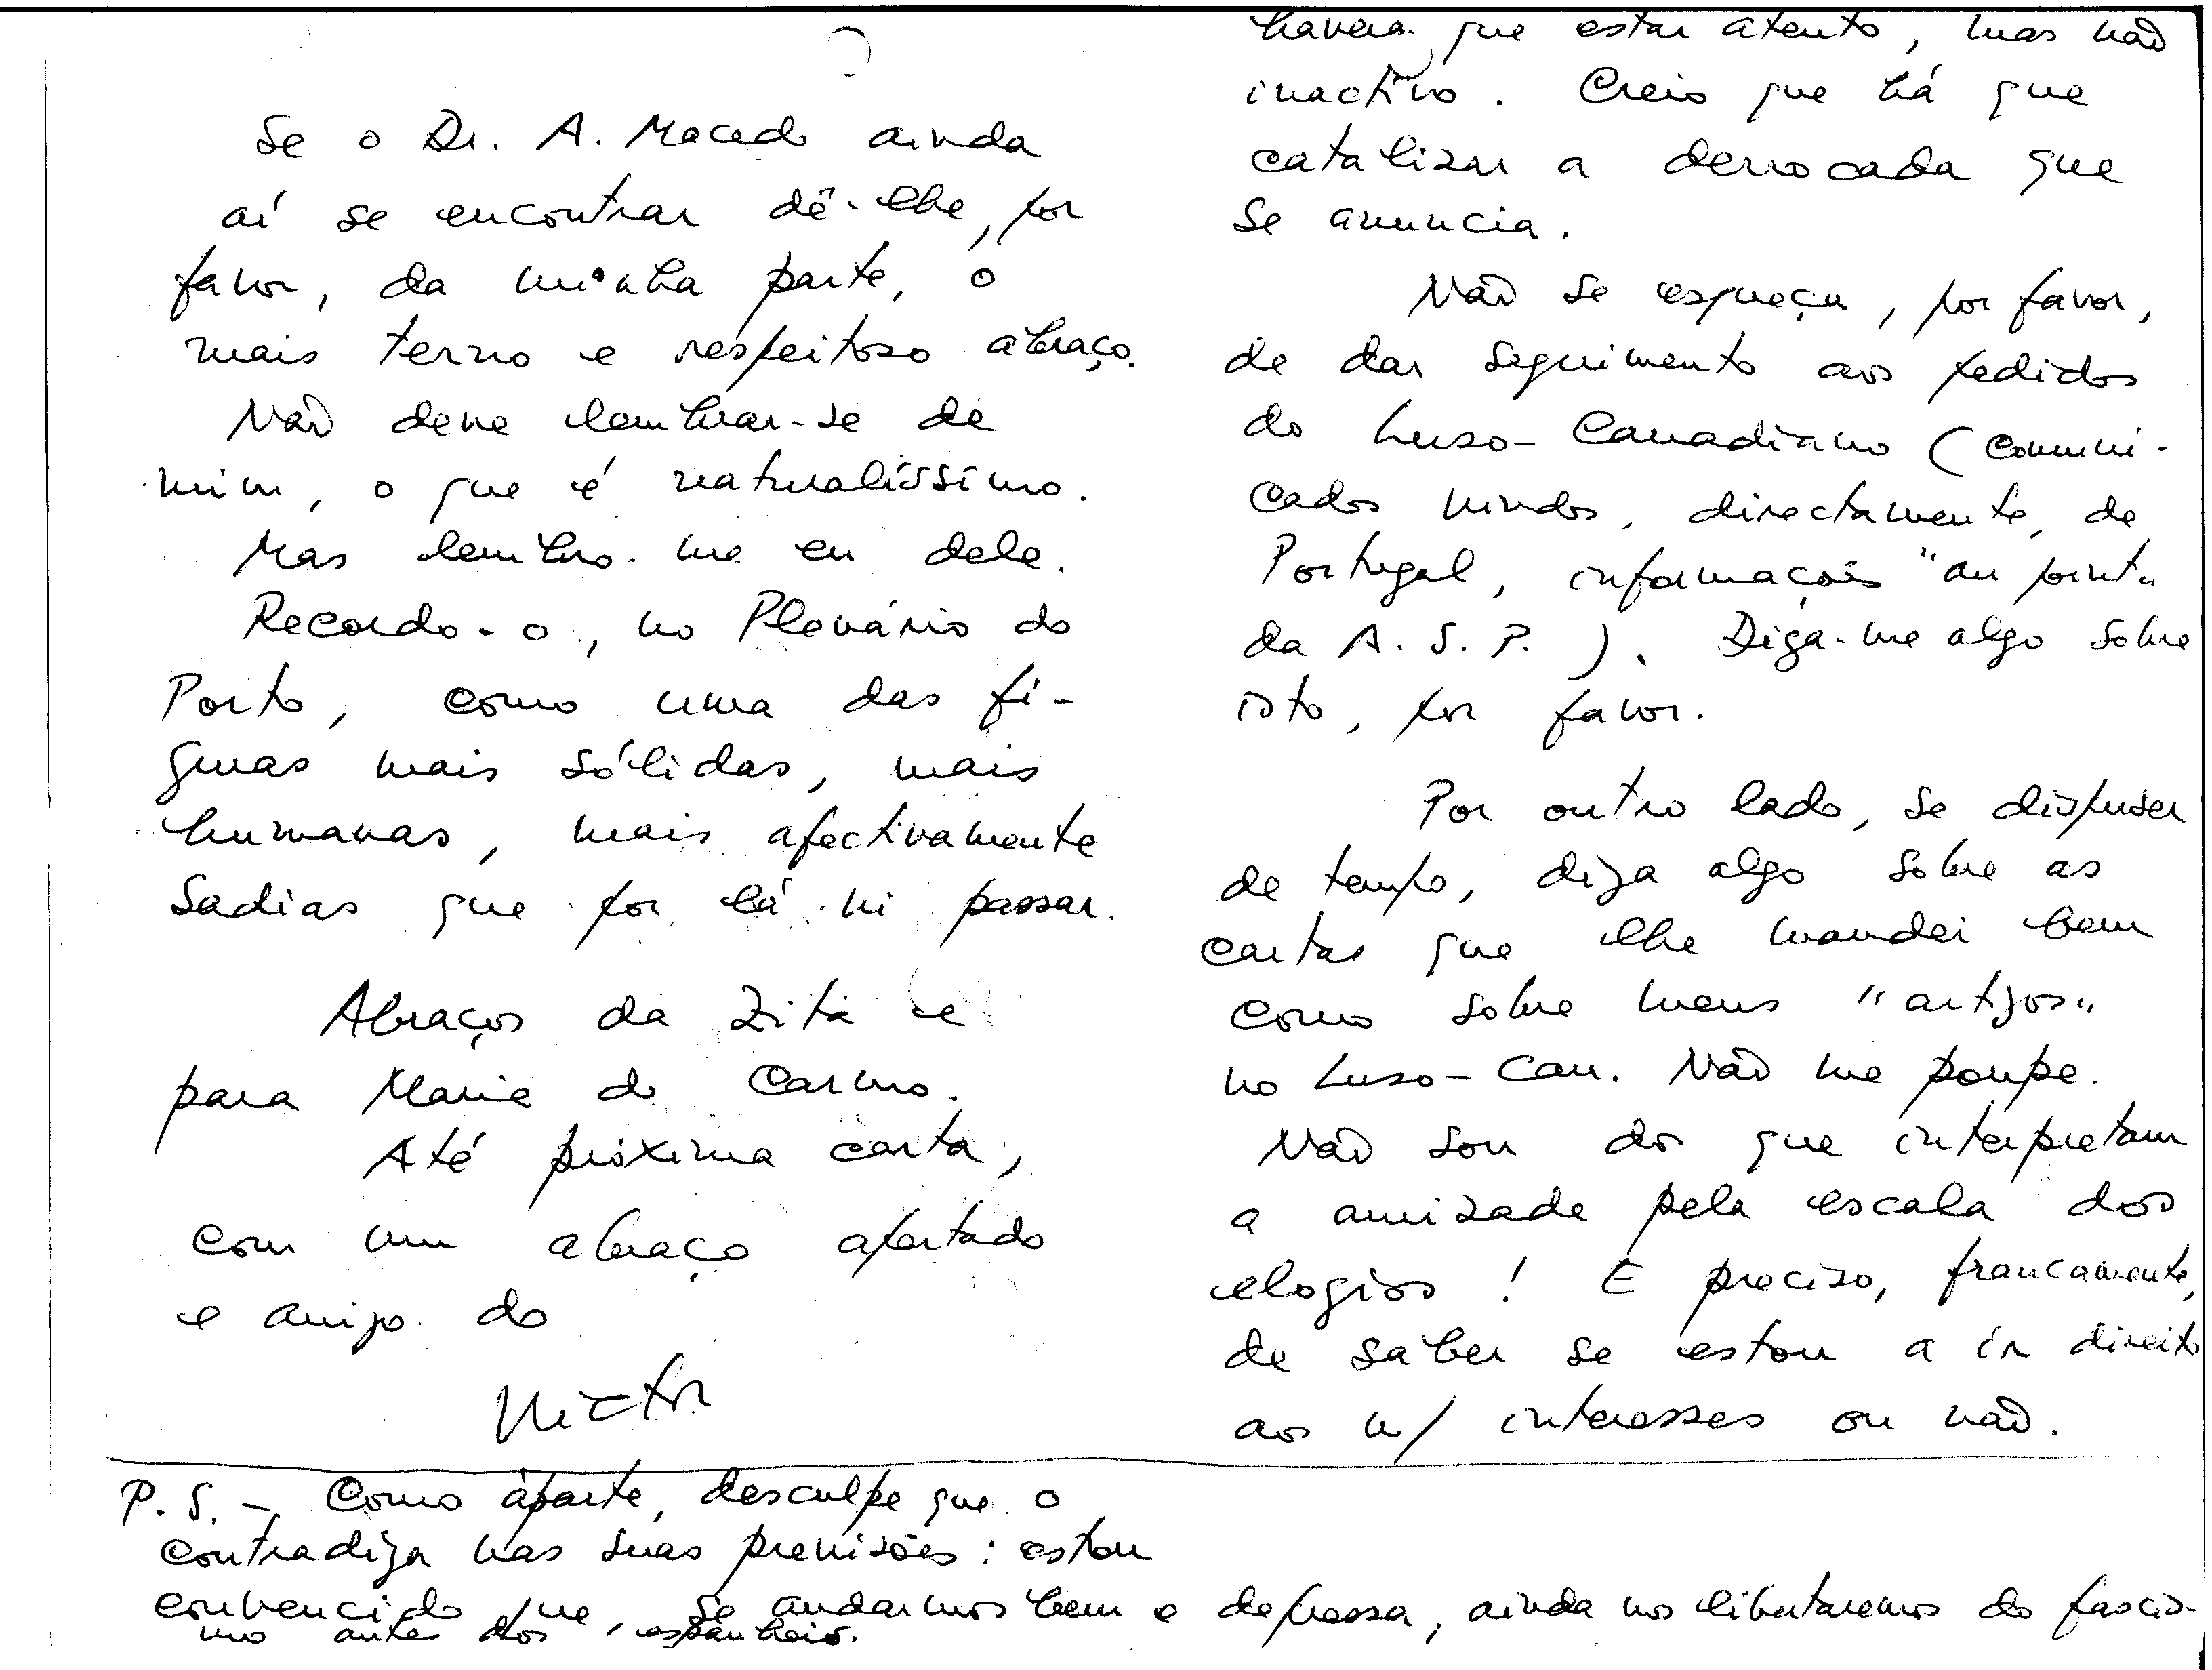 Se o Dr. A. Macedo ainda
aí se encontrar dê-lhe, por
favor, da minha parte, o
mais terno e respeitoso abraço.
Não deve lembrar-se de
mim, o que é naturalíssimo.
Mas lembro-me eu dele.
Recordo-o, no Plenário do
Porto, como uma das fi-
guras mais sólidas, mais
humanas, mais afectivamente
sadias que por lá vi passar.
Abraços da Zita e
para Maria do Carmo.
Até próxima carta,
com um abraço apertado
e amigo do
Victor
haverá que estar atento, mas não
inactivo. Creio que há que
catalizar a derrocada que
se anuncia.
Não se esqueça, por favor,
de dar seguimento aos pedidos
do Luso-Canadiano (comuni-
cados vindos, directamente, de
Portugal, informações "au point"
da A.S.P.). Diga-me algo sobre
isto, por favor.
Por outro lado, se dispuser
de tempo, diga algo sobre as
cartas que lhe mandei bem
como sobre meus "artigos"
no Luso-Can. Não me poupe.
Não sou dos que interpretam
a amizade pela escala dos
elogios! E preciso, francamente,
de saber se estou a ir direito
aos n/ interesses ou não.
P.S. - Como àparte, desculpe que o
contradiga nas suas previsões: estou
convencido que, se andarmos bem e depressa, ainda nos libertaremos do fascis-
mo antes dos espanhois.